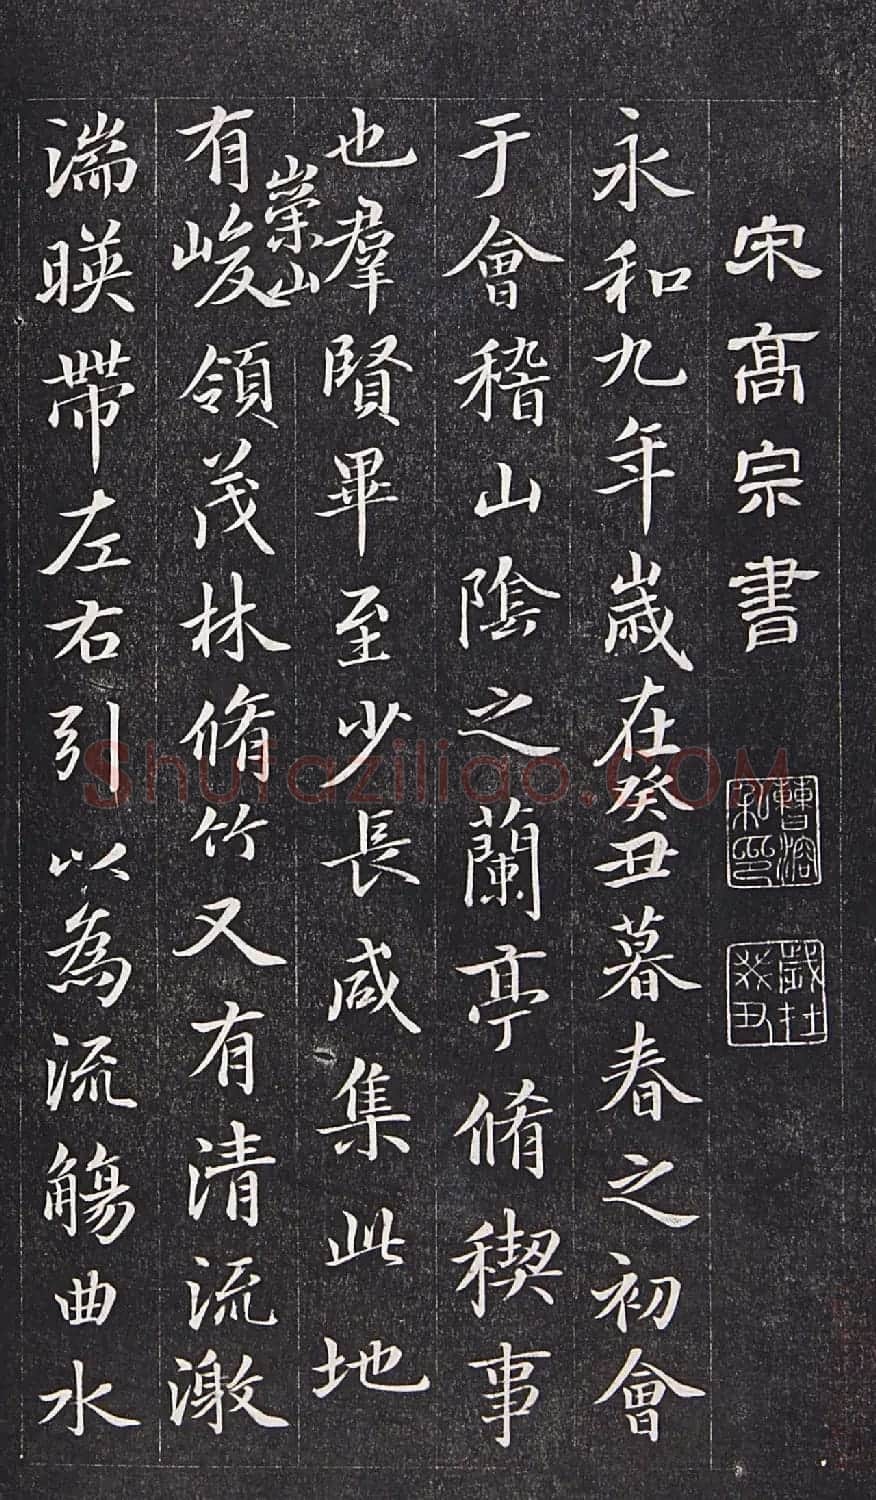 宋髙宗書
曹溶私印
歲在癸丑
永和九年歲在癸丑暮春之初會
于會稽山陰之蘭亭脩稧事
也羣賢畢至少長咸集此地
有崇山峻領茂林脩竹又有清流激
湍暎帶左右引以為流觴曲水
Shufaziliao.COM